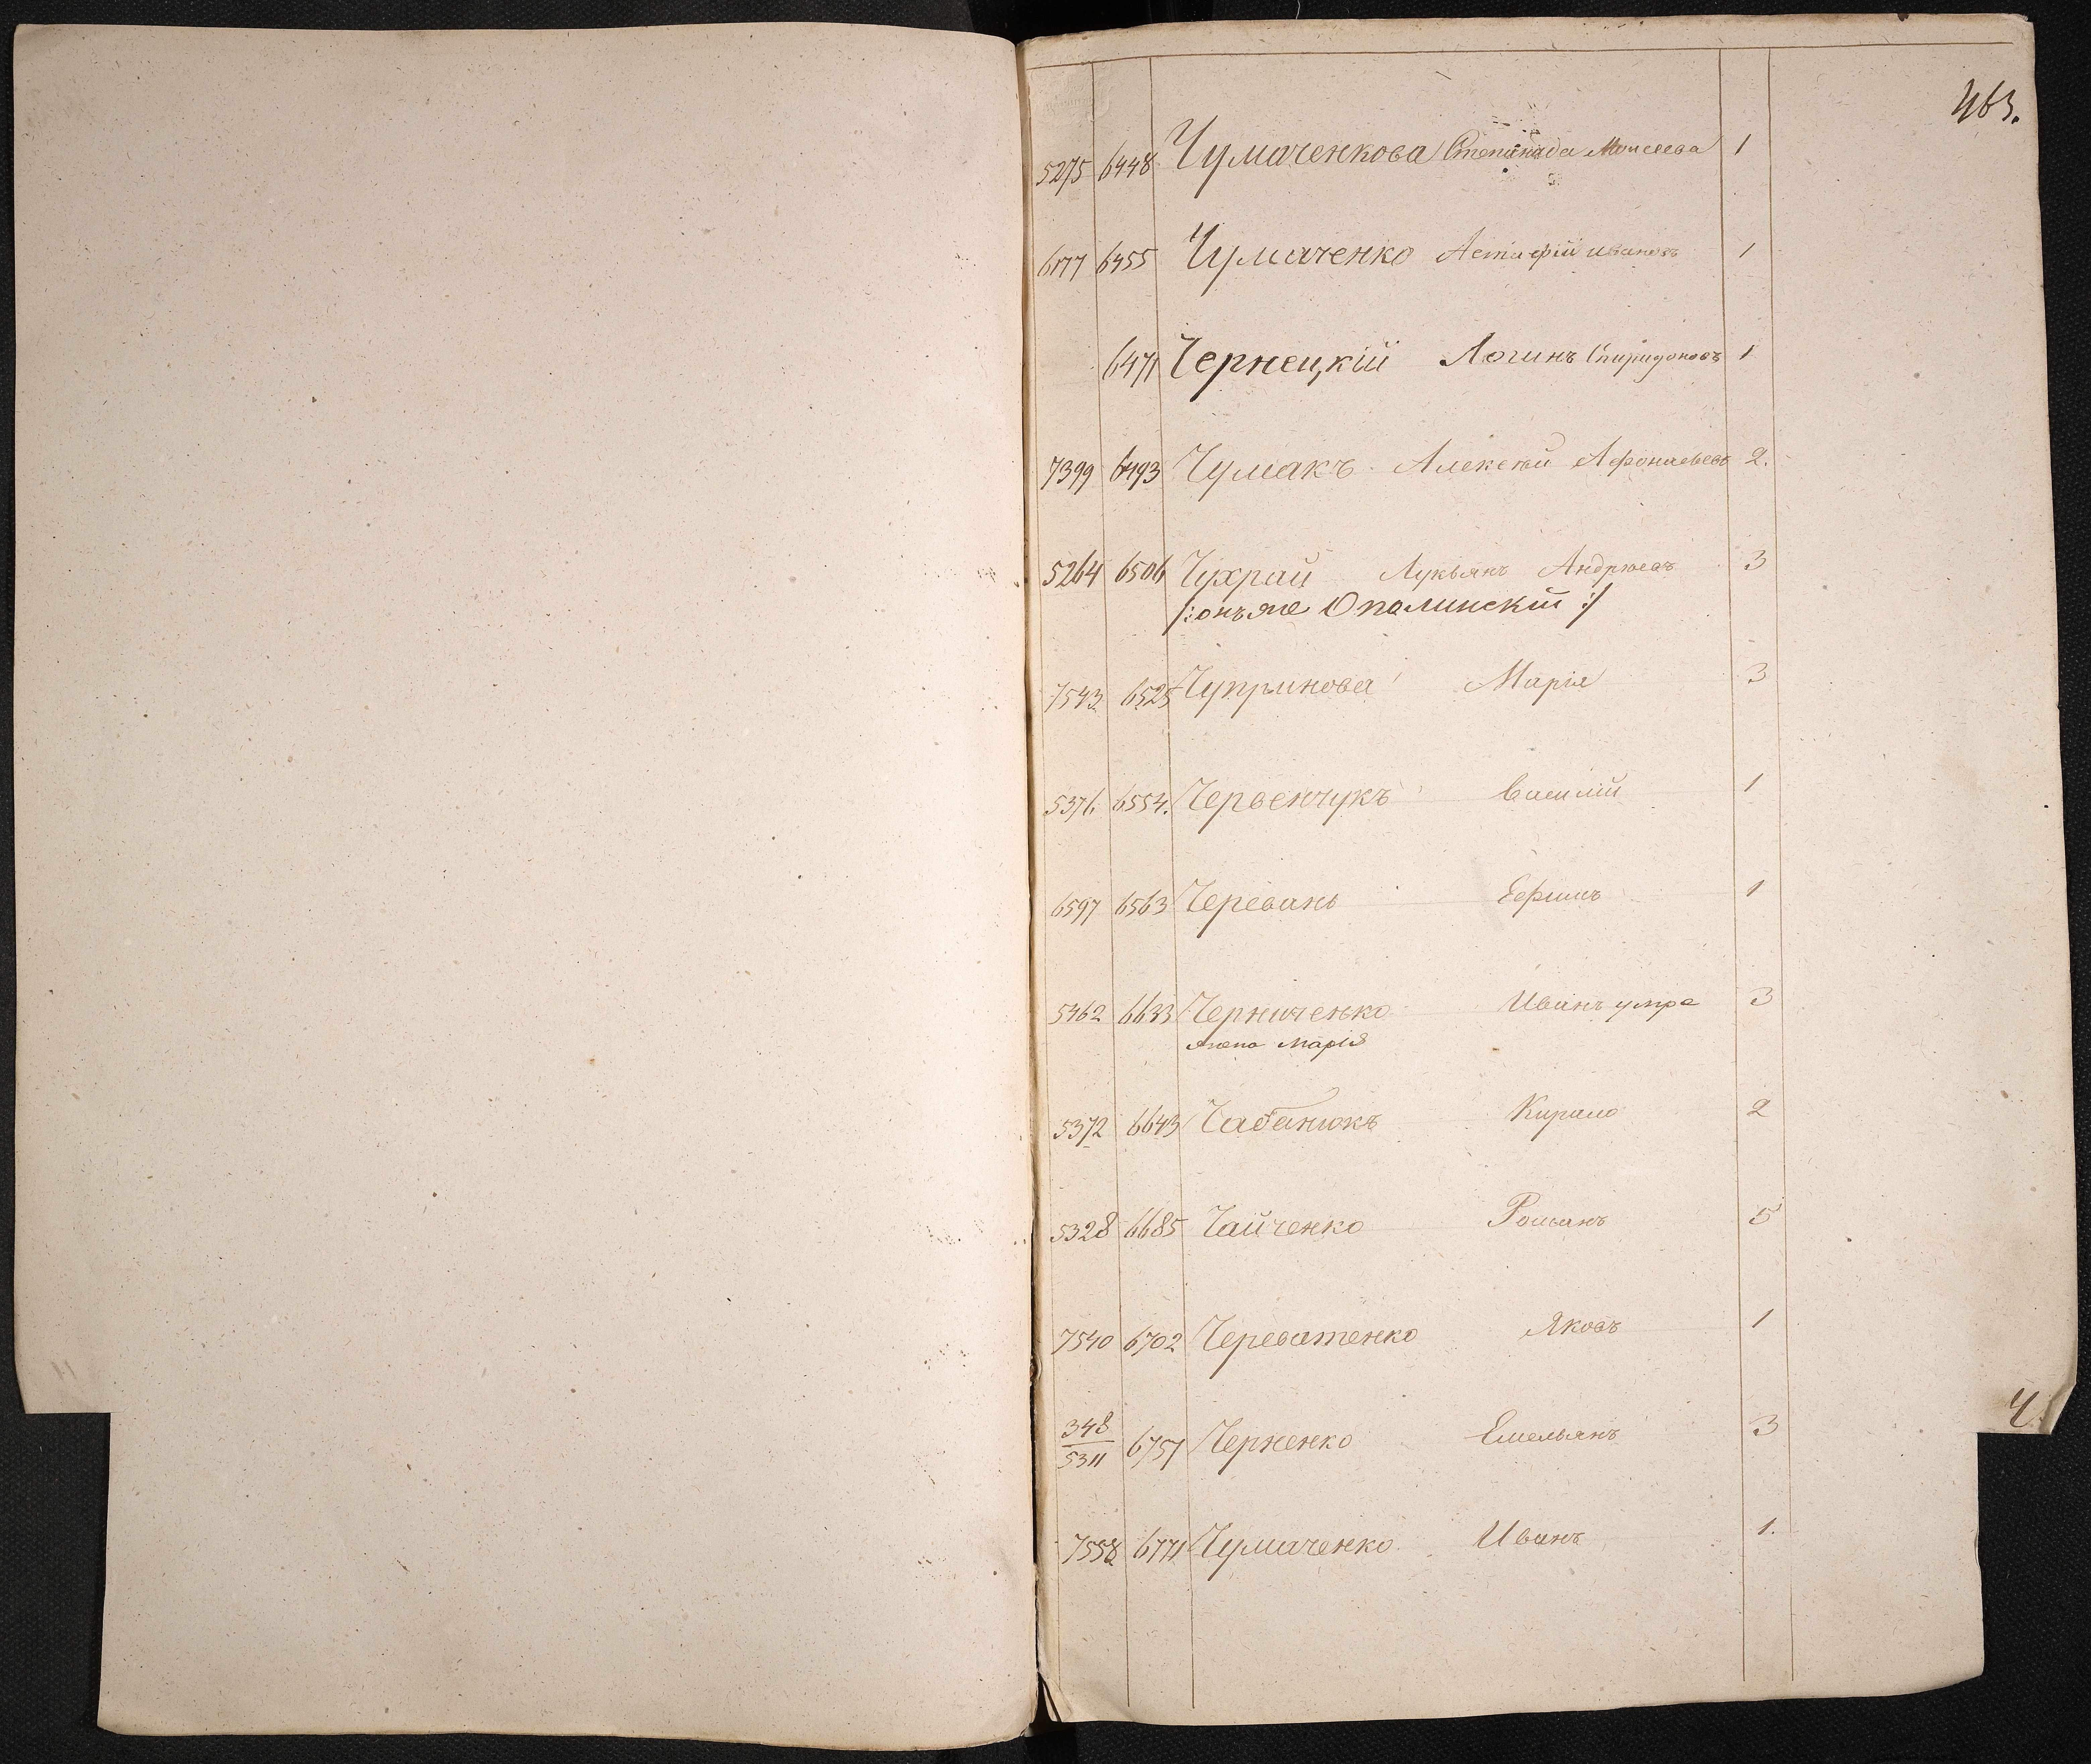 463.
5275 6448 Чумаченкова Степанида Моисеева 1
6177 6455 Чумаченко Астафій Ивановъ 1
6471 Чернецкій Логинъ Спиридоновъ 1
7399 6493 Чумакъ Алексѣй Афонасьевъ 2.
5264 6506 Чухрай Лукьянъ Андреевъ 3
/:онъ же Опалинскій:/
7543 6525 Чупринова Марія 3
5376 6554. Червенчукъ Василій 1
6597 6563 Черевань Ефимъ 1
5462 6633 Черниченко Иванъ умре 3
жена Марія
5372 6643 Чабанюкъ Кирило 2
5328 6685 Чайченко Романъ 5
7540 6702 Череватенко Яковъ 1
348
5311 6751 Черненко Емельянъ 3
7558 6771 Чумаченко Иванъ 1.
Ч.